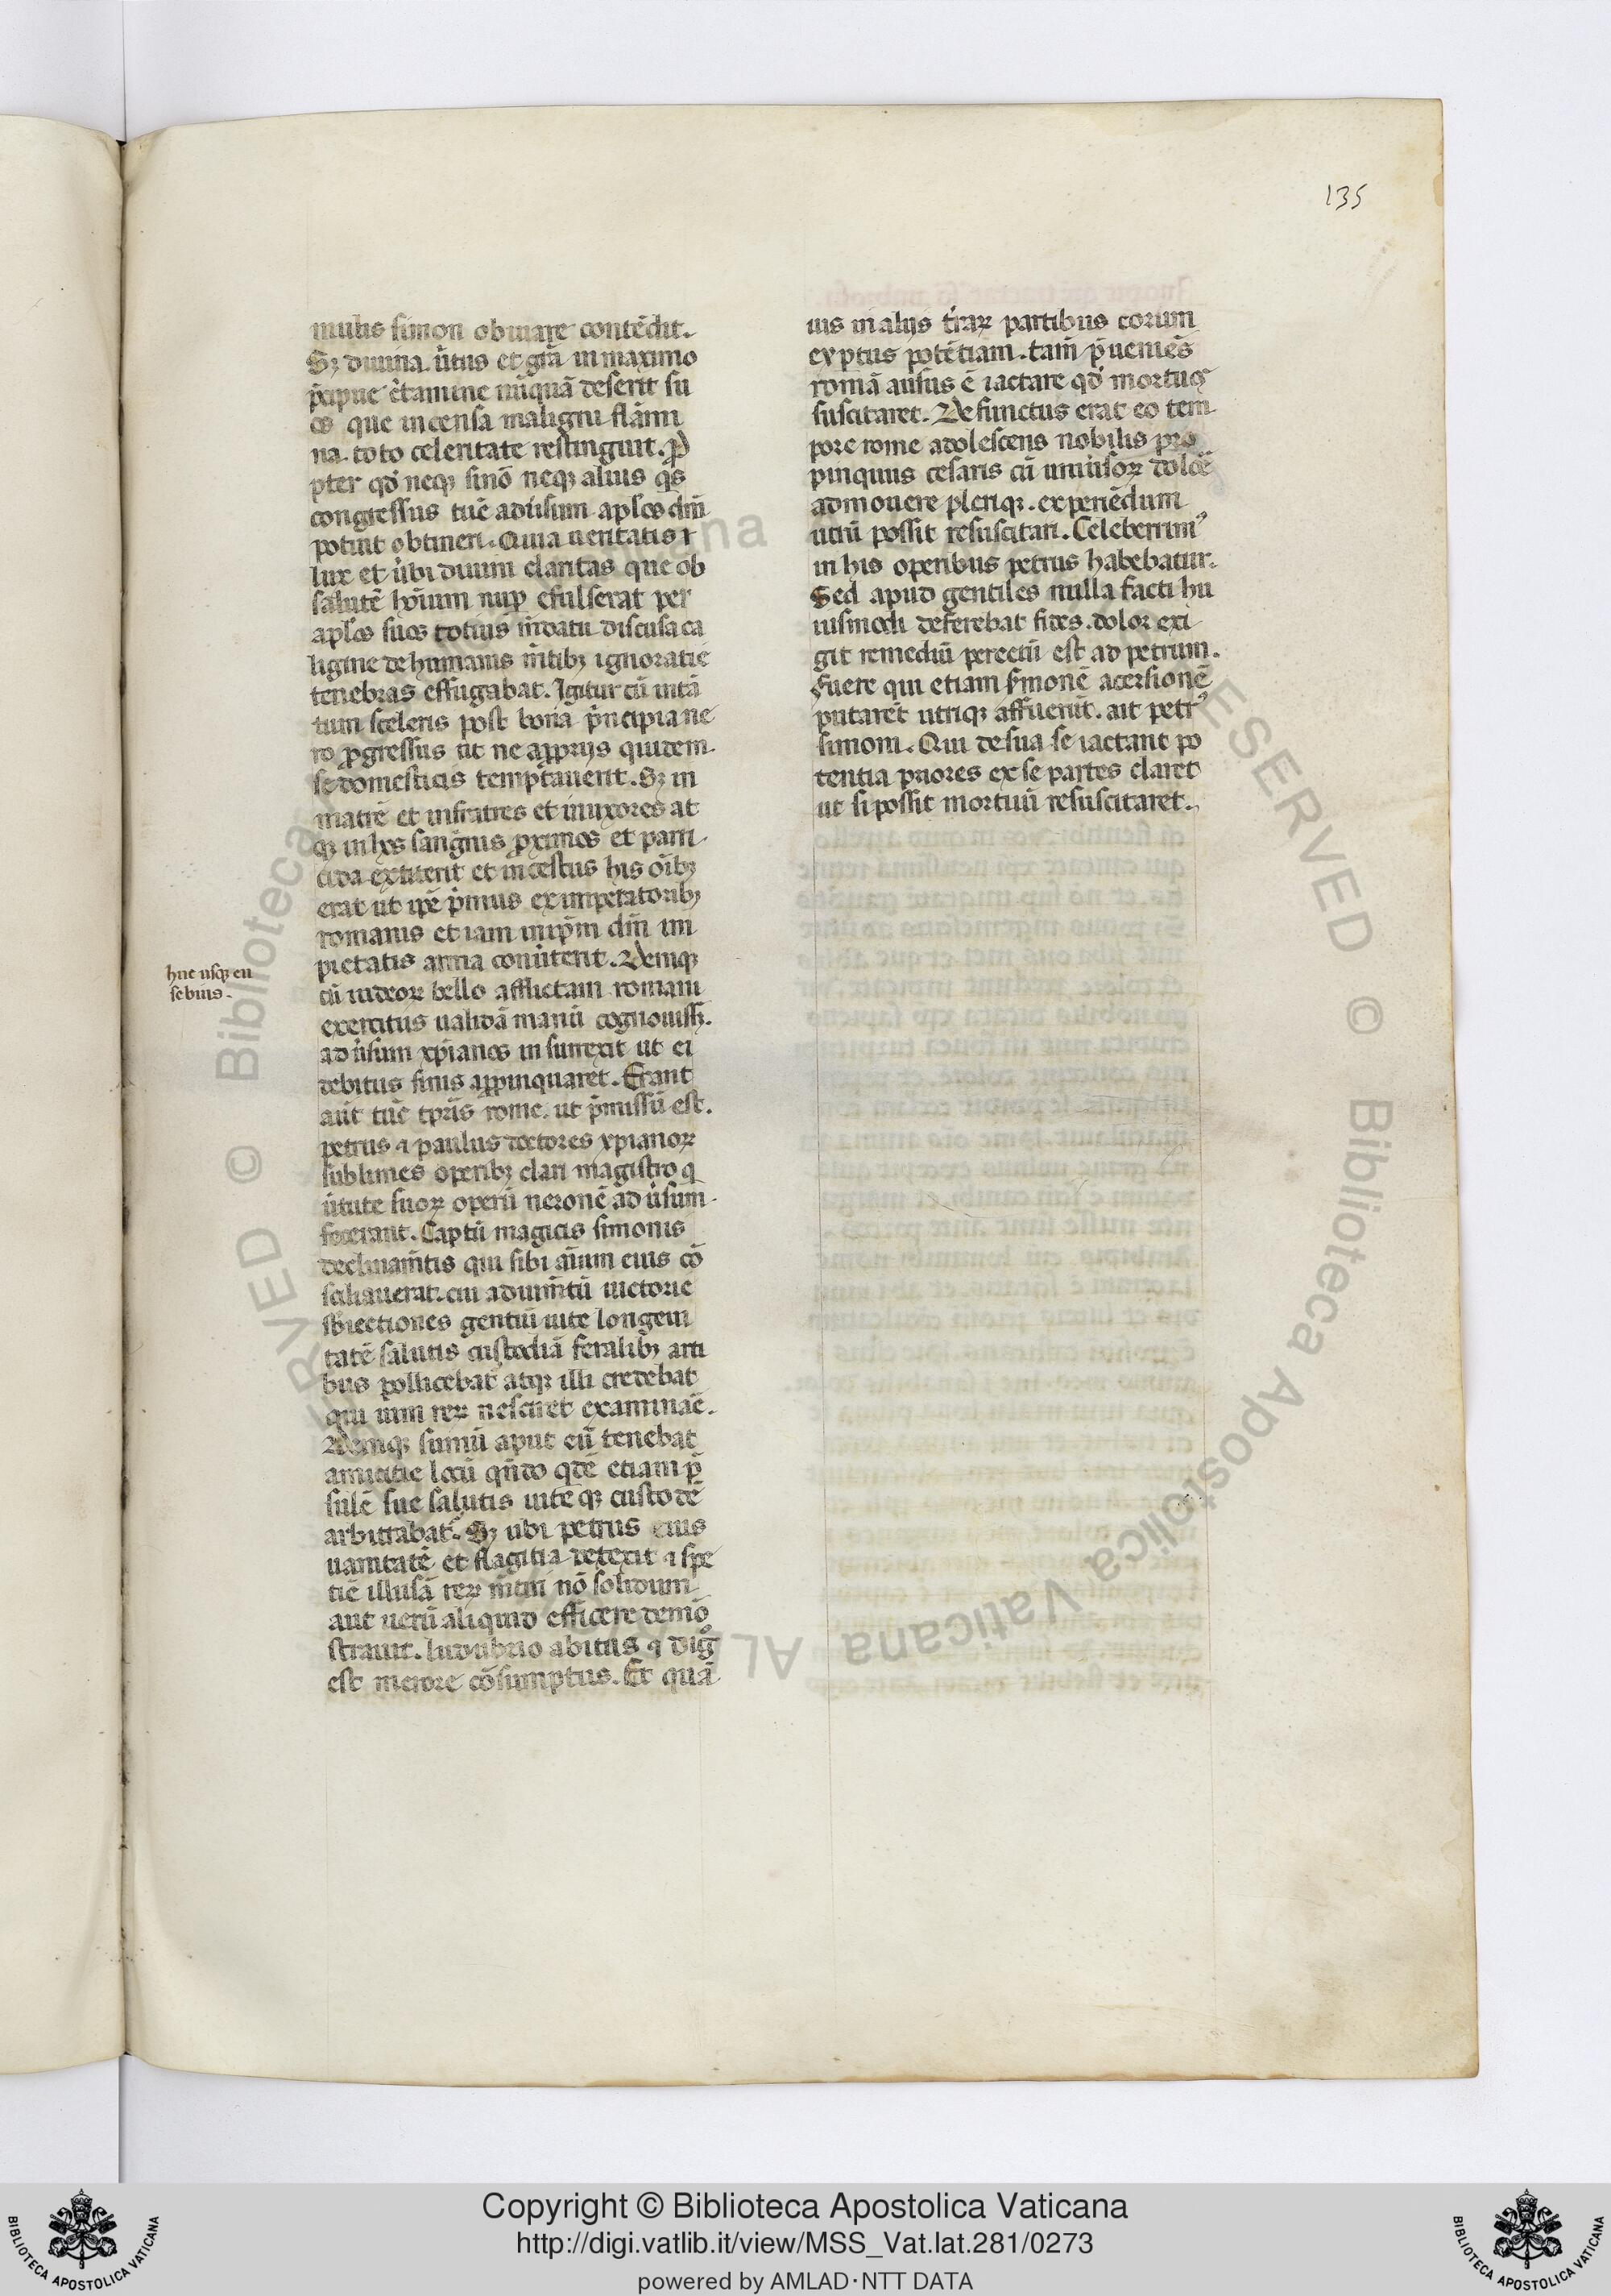 135
mulis simon obuiare contēdit.
Sꝫ diuina u̓tus et gr̄a in maximo
p̄cipue c̓tamine nūquā deserit su
os que incensa maligni flāmī
na. toto celeritate restinguit. ꝓ
pter qd̓ neqꝫ simō neqꝫ alius qs̓
congressus tūc adu̓sum apl̓os dn̄i
potuit obtineri. Quia ueritatis ⁊
lux et u̓bi diuini claritas que ob
salutē hoīum nuꝑ efulserat per
apl̓os suos totius mūdatu discusa ca
ligine de humanis m̄tibꝫ ignoratie
tenebras effugabat. Igitur cū intā
tum sceleris post boria p̄ncipia ne
ro ꝓgressus ut ne aꝓprijs quidem
se domesticis temptauerit. Sꝫ in
matrē et infratres et inuxores at
qꝫ in hos sanguis ꝓximos et parri
cida extiterit et incestus his oībꝫ
erat ut ip̄e p̄imus ex imperatoribꝫ
romanis et iam in ip̄m dn̄i im
pietatis arma conu̓terit. Deniqꝫ
cū iudeoꝝ bello afflictam romani
exercitus ualidā manū cognouissꝫ.
ad u̓sum xp̄ianos in surrexit ut ei
debitus finis aꝓpinquaret. Erant
aut̄ tūc tp̄ris rome. ut p̄missū est.
petrus ⁊ paulus doctores xpianoꝝ
sublimes operibꝫ clari magistro q
u̓tute suoꝝ operū neronē ad u̓sum
fecerant. Captū magicis simonis
declinam̄tis qui sibi aīum eius cō
siliauerat. cui adium̄tū uictorie
sb̓iectiones gentiū uite longeui
tatē salutis custodiā feralibꝫ arti
bus pollicebat̓ atqꝫ illi credebat
qui uim reꝝ nesciret examinār̄e.
Deniqꝫ sumū aput eū tenebat
amicitie locū qn̄do qd̄e etiam p̄
sulē sue salutis uite qꝫ custodē
arbitrabat̓. Sꝫ ubi petrus eius
uanitatē et flagitia detexit ⁊ spe
tiē illusā reꝝ m̄titi nō solidum
aut uerū aliquid efficere demō
strauit. ludubrio abitus ⁊ dig̓
est merore cōsumptus. Et quā
huc usqꝫ eu
sebius.
uis in alijs t̓raꝝ partibus eorum
exꝑtus potētiam. tam̄ p̄ueniēs
romā ausus ē iactare qd̓ mortuꝰ
suscitaret. Defunctus erat eo tem
pore rome adolescens nobilis pro
pinquus cesaris cū uniu̓soꝝ dolo͛e
admouere pleriqꝫ. experiēdum
utrū possit resuscitari. Celeberrimꝰ
in his operibus petrus habebatur.
Sed apud gentiles nulla facti hu
iusmodi deferebat fides. dolor exi
git remediū perectū est ad petrum.
Fuere qui etiam simonē acersionē
putarēt utriqꝫ affuerūt. ait petrꝰ
simoni. Qui de sua se iactant po
tentia priores ex se partes claret
ut si possit mortuū resuscitaret.
Copyright © Biblioteca Apostolica Vaticana
http://digi.vatlib.it/view/MSS_Vat.lat.281/0273
powered by AMLAD·NTT DATA
BIBLIOTECA APOSTOLICA VATICANA
BIBLIOTECA APOSTOLICA VATICANA